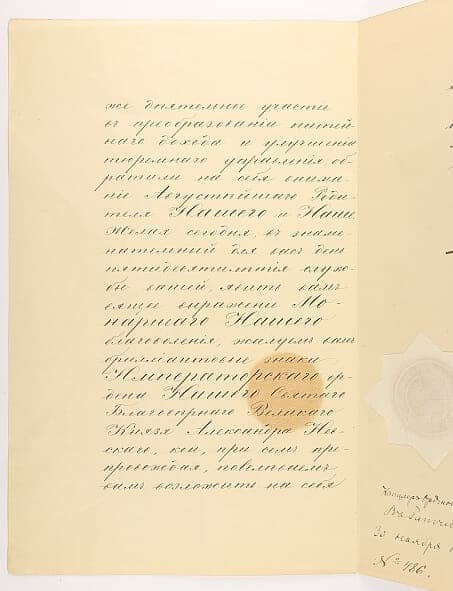 же дѣятельное участіе
въ преобразованіи питей
наго дохода и улучшеніи
тюремнаго управленія об
ратили на себя внима
ніе Августѣйшаго Роди
теля Нашего и Наше.
Желая сегодня, въ знаме
нательный для васъ день
пятидесятилѣтія служ
бы вашей, явить вамъ
вящее выраженіе Мо-
наршаго Нашего
благоволенія, жалуемъ вамъ
брилліантовые знаки
Императорскаго ор-
дена Нашего Святаго
Благовѣрнаго Великаго
Князя Александра Нев
скаго, кои, при семъ пре-
провождая, повелѣваемъ
вамъ возложить на себя
Канцлеръ
30 ноября
№ 486.